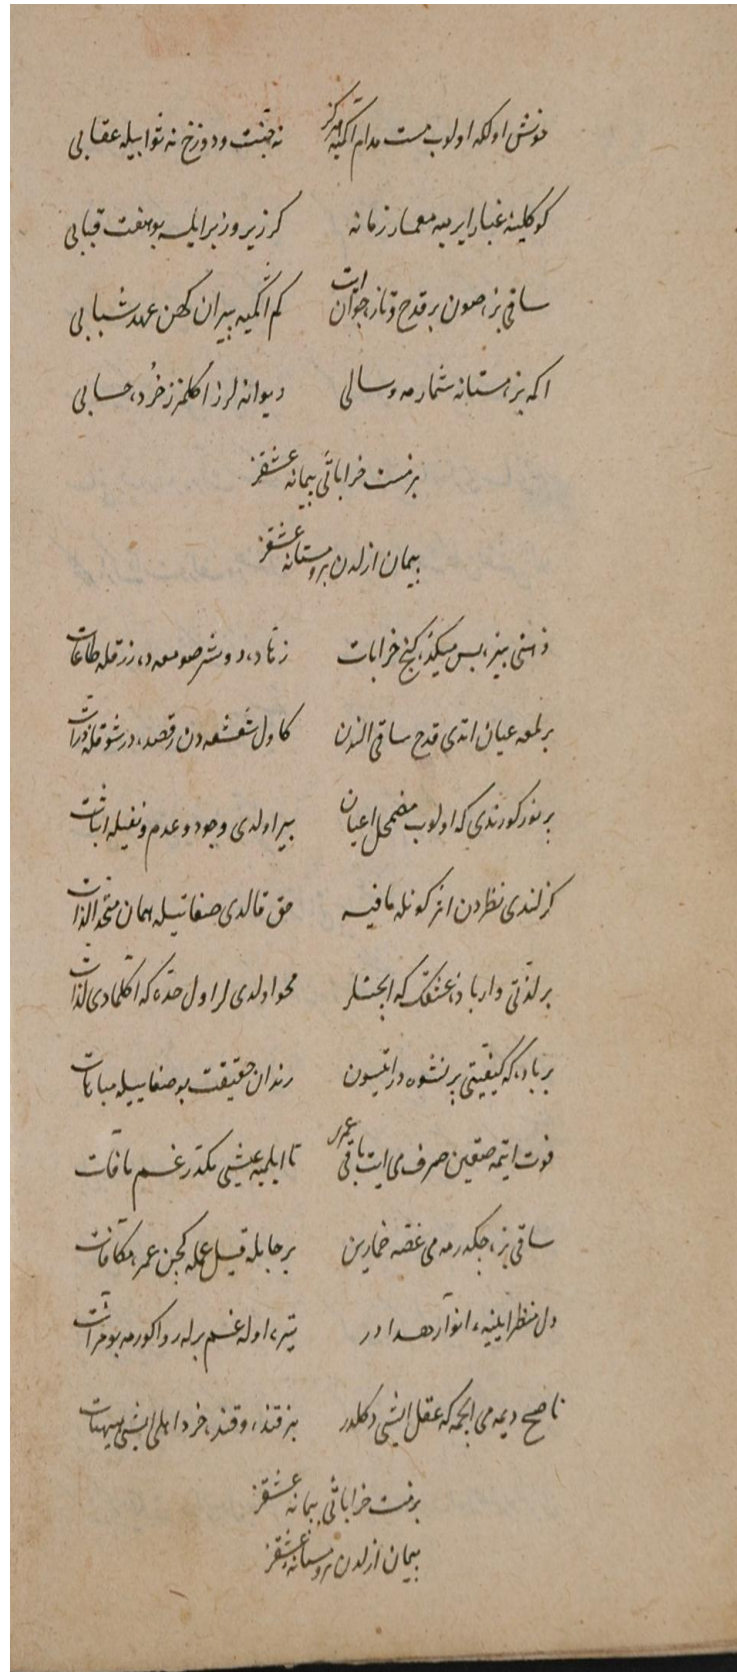 خوش اولکه اولوب مست مدام اکمیه هرگز نه جنّت و دوزخ نه ثوابیله عقابی
کوکلینه غبار ایرمیه معمار زمانه کر زیر و زبر ایلسه بو هفت قبابی
ساقی بزه صون بر قدح و تازه جوان ات کم اکمیه پیران کهن عهد شبابی
اکمه بزه مستانه شمار مه و سالی دیوانه لرز اکلمزز خرده حسابی
بر مست خراباتی پیمانه عشقز
پیمان ازلدن برو مستانه عشقز
بس میکده کنج خرابات زهّاده دوشر صومعه ده زرقله طاعات
بر لمعه عیان اتدی قدح ساقی الندن کاول شعشعه دن رقصده در شوقله ذرات
بر نور کورندی که اولوب مضمحل اعیان بیر اولدی وجود و عدم و نفیله اثبات
کزلندی نظردن اثر کونله مافیه حق قالدی صفاتیله همان متّحد الذات
بر لذّتی وار باده عشقک که ایچنلر محو اولدی لر اول حدّه که اکلمادی لذّات
بر باده که کیفیّتی بر نشوه در ایتسون رندان حقیقت بو صفاییله مباهات
فوت ایتمه صقین صرف می ایت باقی عمری تا ایلمیه عیشی مکدّر غم مافات
ساقی بزه چکدرمه می غصّه خمارین بر جامله قیل عمله کچن عمره مکافات
دل منظر ایلینه انوار هدادر تیره اوله غمبرله روا کورمه بو مرآت
ناصح دیمه می ایچمه که عقل ایشی دکلدر بز قنده و قنده خرد اهلی ایشی هیهات
بر مست خراباتی پیمانه عشقز
پیمان ازلدن برو مستانه عشقز